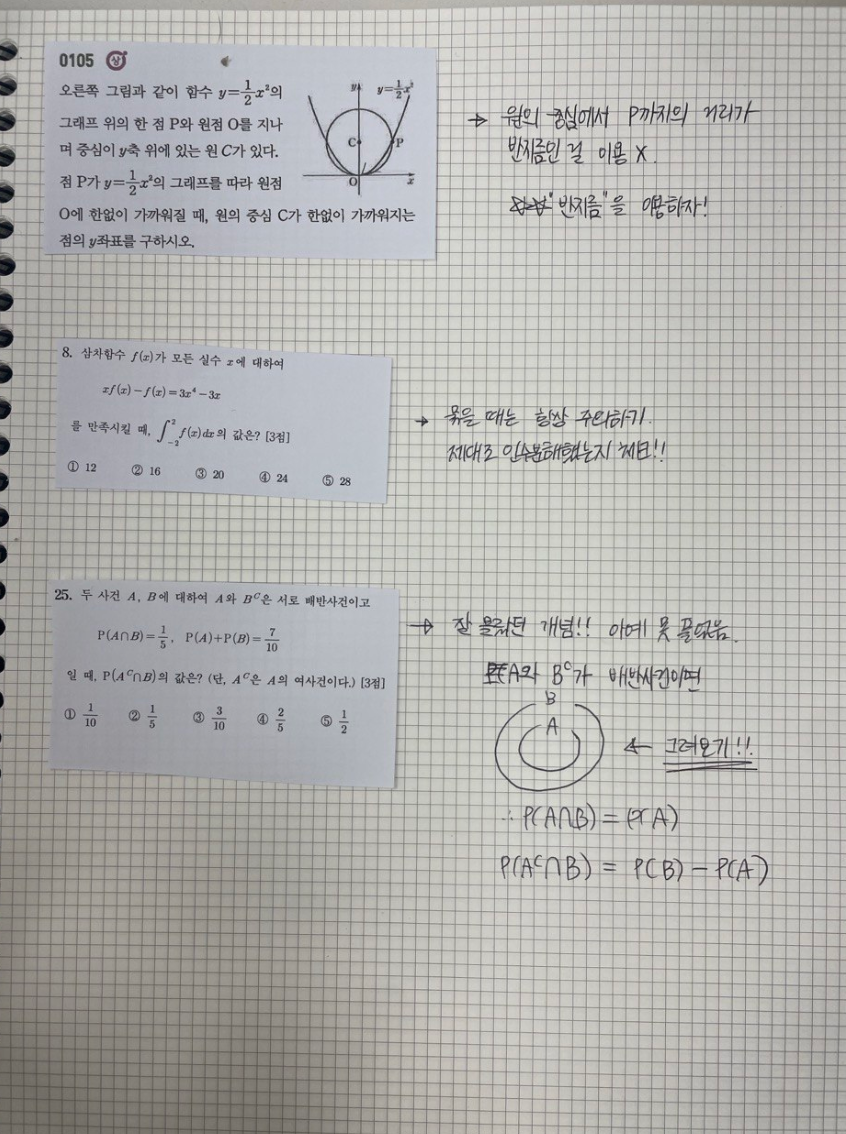 0105 상
오른쪽 그림과 같이 함수 y=1/2x²의
그래프 위의 한 점 P와 원점 O를 지나
며 중심이 y축 위에 있는 원 C가 있다.
점 P가 y=1/2x²의 그래프를 따라 원점
O에 한없이 가까워질 때, 원의 중심 C가 한없이 가까워지는
점의 y좌표를 구하시오.
y y=1/2x²
C P
O x
→ 원의 중심에서 P까지의 거리가
반지름인 걸 이용 X.
"반지름"을 이용하자!
8. 삼차함수 f(x)가 모든 실수 x에 대하여
xf(x)-f(x)=3x⁴-3x
를 만족시킬 때, ∫₋₂² f(x)dx의 값은? [3점]
① 12 ② 16 ③ 20 ④ 24 ⑤ 28
→ 묶을 때는 항상 주의하기.
제대로 인수분해했는지 체크!!
25. 두 사건 A, B에 대하여 A와 Bᶜ은 서로 배반사건이고
P(A∩B)=1/5, P(A)+P(B)=7/10
일 때, P(Aᶜ∩B)의 값은? (단, Aᶜ은 A의 여사건이다.) [3점]
① 1/10 ② 1/5 ③ 3/10 ④ 2/5 ⑤ 1/2
→ 잘 몰랐던 개념!! 아예 못 풀었음.
A와 Bᶜ가 배반사건이면
B
A
← 그려보기!!
∴ P(A∩B) = P(A)
P(Aᶜ∩B) = P(B) - P(A)